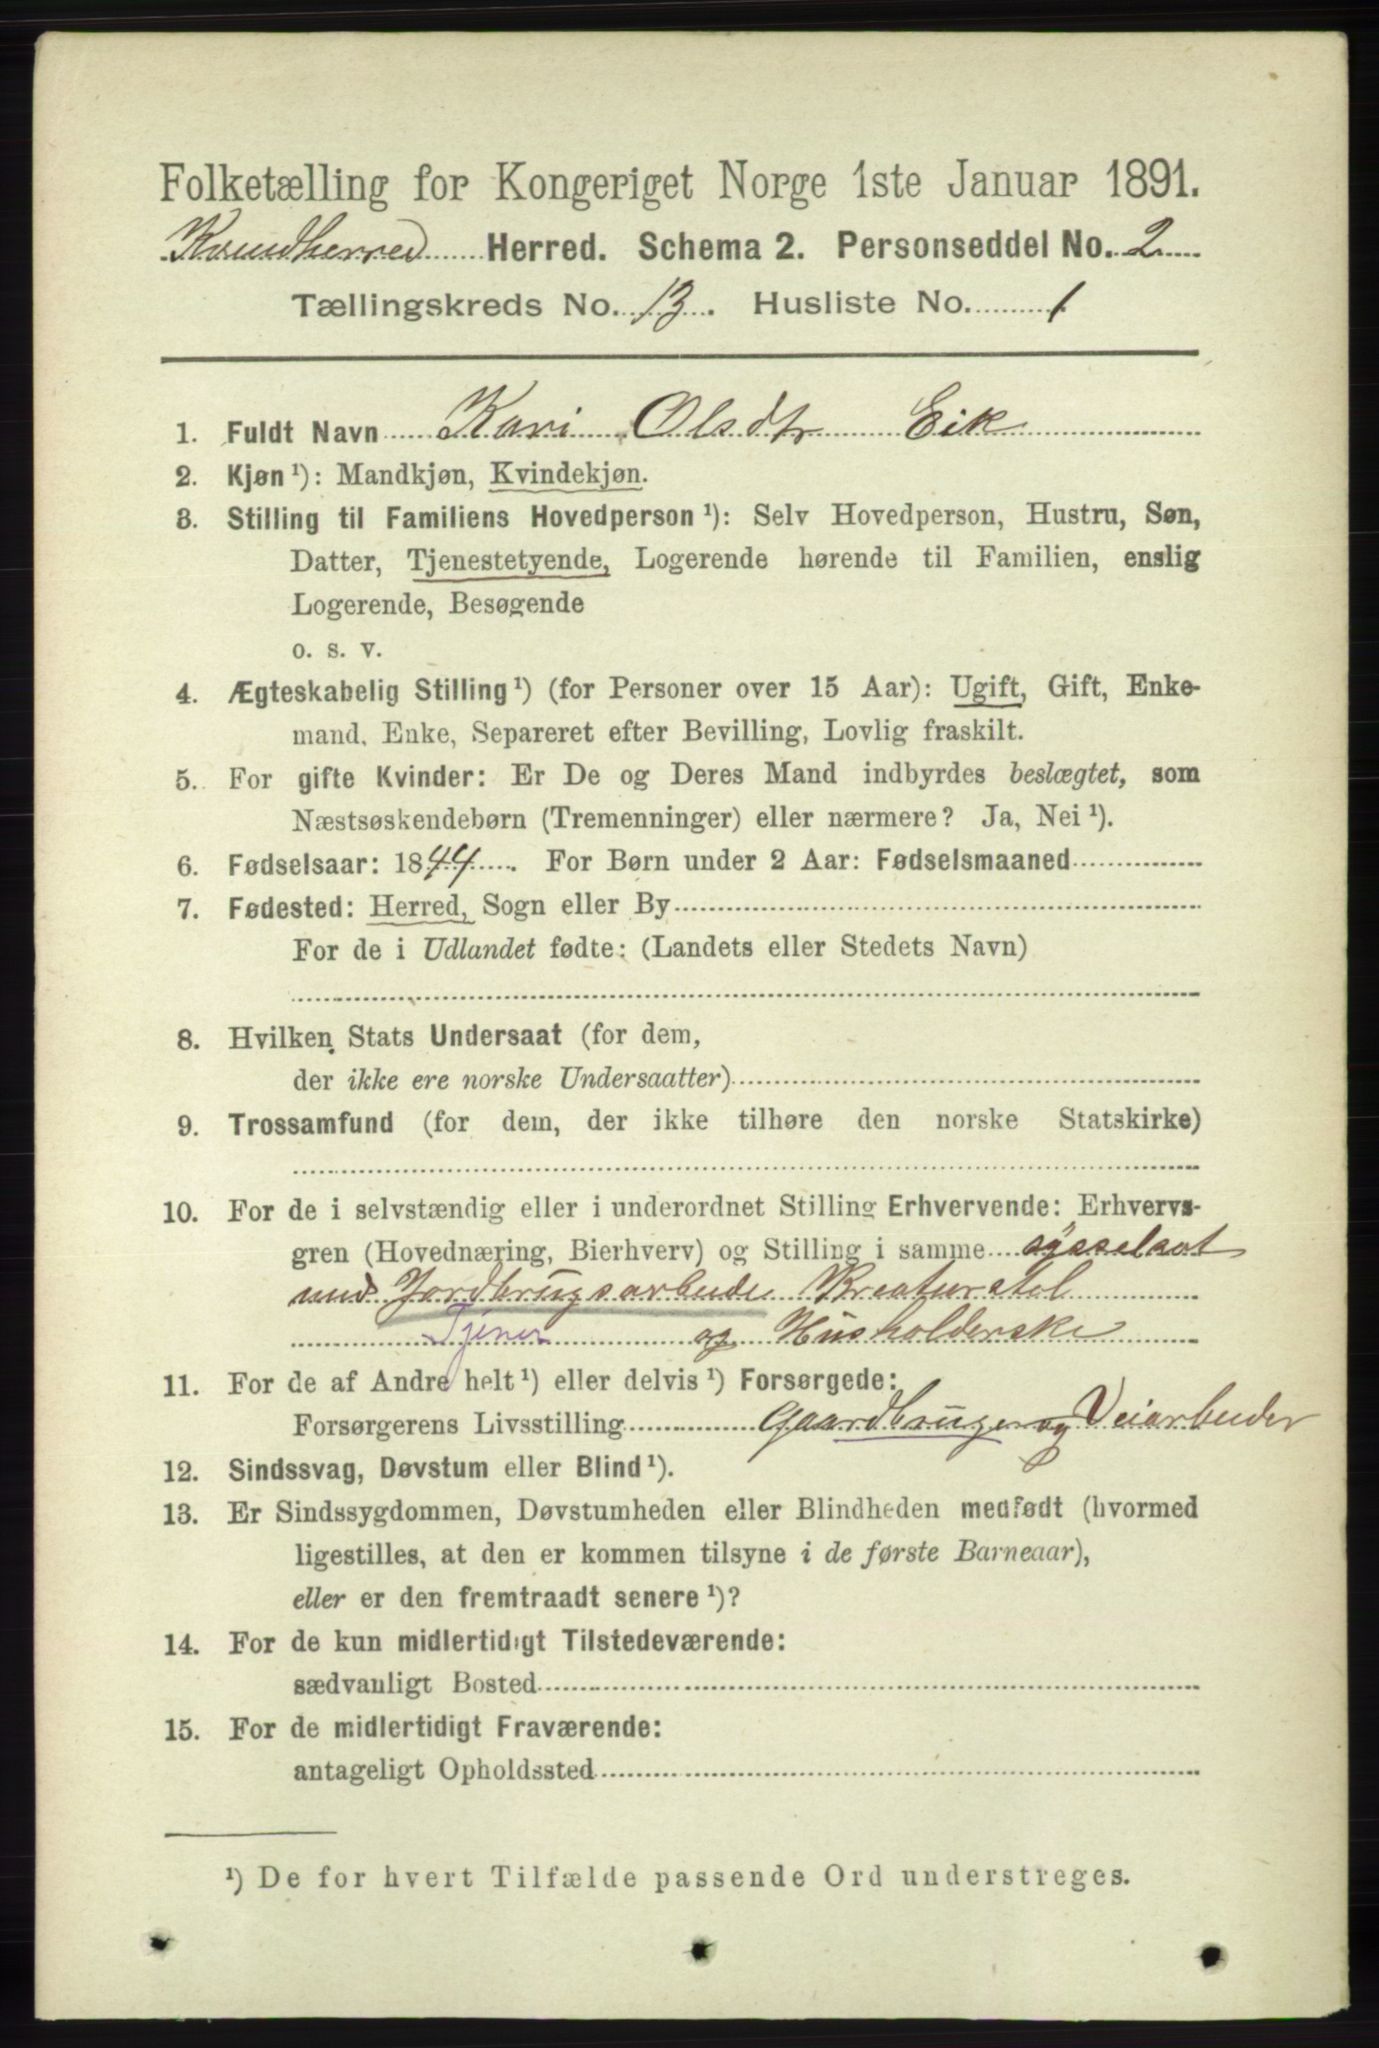 Folketælling for Kongeriget Norge 1ste Januar 1891.
Kvindherred Herred. Schema 2. Personseddel No. 2
Tællingskreds No. 13. Husliste No. 1
1. Fuldt Navn Kari Olsdtr Eik
2. Kjøn ¹): Mandkjøn, Kvindekjøn.
3. Stilling til Familiens Hovedperson ¹): Selv Hovedperson, Hustru, Søn,
Datter, Tjenestetyende, Logerende hørende til Familien, enslig
Logerende, Besøgende
o. s. v.
4. Ægteskabelig Stilling ¹) (for Personer over 15 Aar): Ugift, Gift, Enke-
mand, Enke, Separeret efter Bevilling, Lovlig fraskilt.
5. For gifte Kvinder: Er De og Deres Mand indbyrdes beslægtet, som
Næstsøskendebørn (Tremenninger) eller nærmere? Ja, Nei ¹).
6. Fødselsaar: 1844. For Børn under 2 Aar: Fødselsmaaned
7. Fødested: Herred, Sogn eller By
For de i Udlandet fødte: (Landets eller Stedets Navn)
8. Hvilken Stats Undersaat (for dem,
der ikke ere norske Undersaatter)
9. Trossamfund (for dem, der ikke tilhøre den norske Statskirke)
10. For de i selvstændig eller i underordnet Stilling Erhvervende: Erhvervs-
gren (Hovednæring, Bierhverv) og Stilling i samme sysselsat
med Jordbrugsarbeide Kreaturstel
Tjener og Husholderske
11. For de af Andre helt ¹) eller delvis ¹) Forsørgede:
Forsørgerens Livsstilling Gaardbruger og Veiarbeider
12. Sindssvag, Døvstum eller Blind ¹).
13. Er Sindssygdommen, Døvstumheden eller Blindheden medfødt (hvormed
ligestilles, at den er kommen tilsyne i de første Barneaar),
eller er den fremtraadt senere ¹)?
14. For de kun midlertidigt Tilstedeværende:
sædvanligt Bosted
15. For de midlertidigt Fraværende:
antageligt Opholdssted
¹) De for hvert Tilfælde passende Ord understreges.